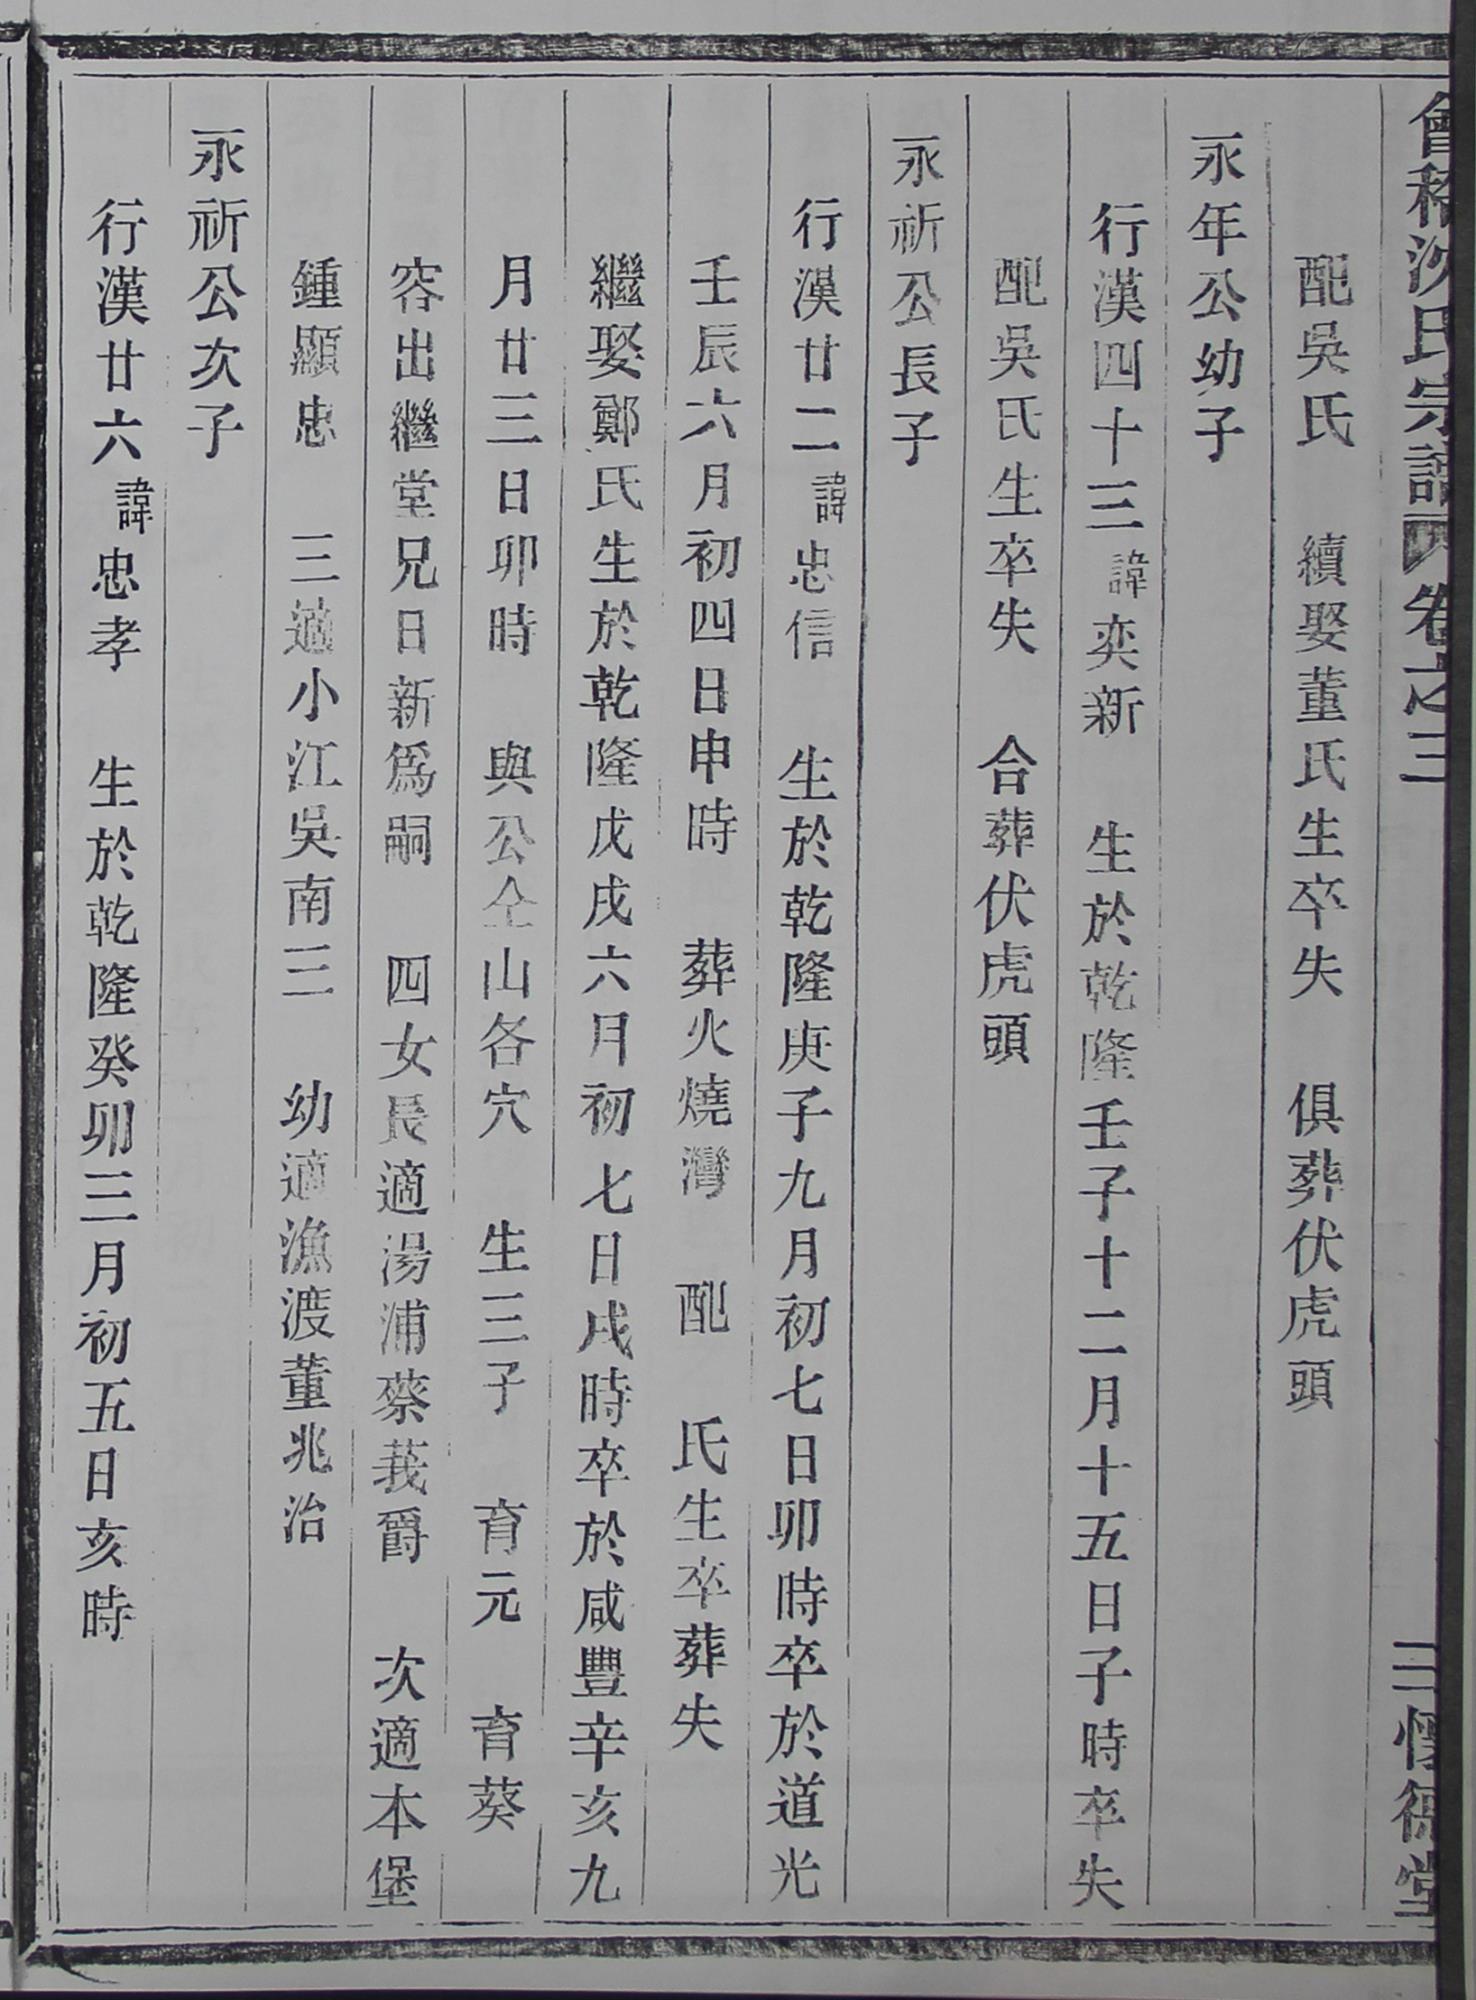 會稽沈氏宗譜 卷之三 二 懷德堂
配吳氏 續娶董氏生卒失 俱葬伏虎頭
永年公幼子
行漢四十三諱奕新 生於乾隆壬子十二月十五日子時卒失
配吳氏生卒失 合葬伏虎頭
永祈公長子
行漢廿二諱忠信 生於乾隆庚子九月初七日卯時卒於道光
壬辰六月初四日申時 葬火燒灣 配 氏生卒葬失
繼娶鄭氏生於乾隆戊戌六月初七日戌時卒於咸豐辛亥九
月廿三日卯時 與公仝山各穴 生三子 育元 育葵
容出繼堂兄日新爲嗣 四女長適湯浦蔡莪爵 次適本堡
鍾顯忠 三適小江吳南三 幼適漁渡董兆治
永祈公次子
行漢廿六諱忠孝 生於乾隆癸卯三月初五日亥時